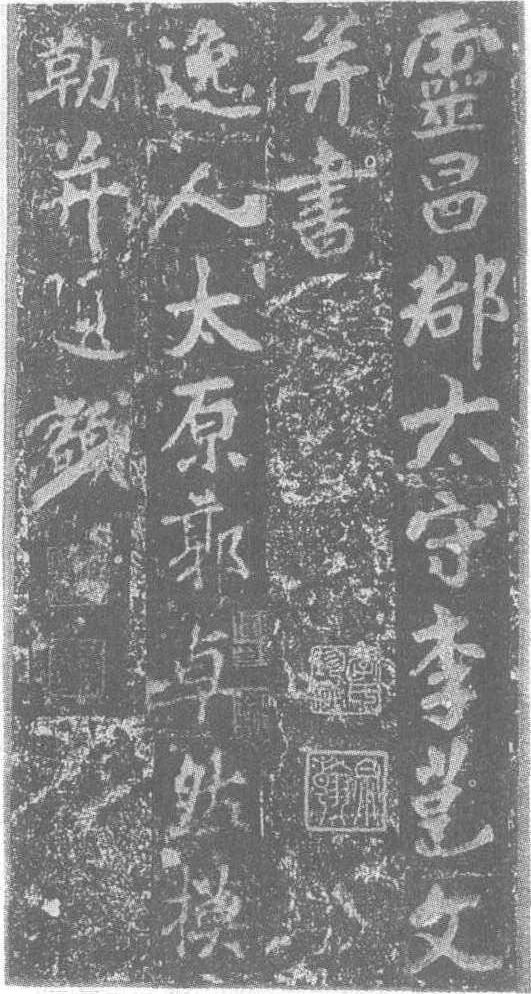 靈昌郡太守李邕文
并書
逸人太原郭卓然模
勒并題額